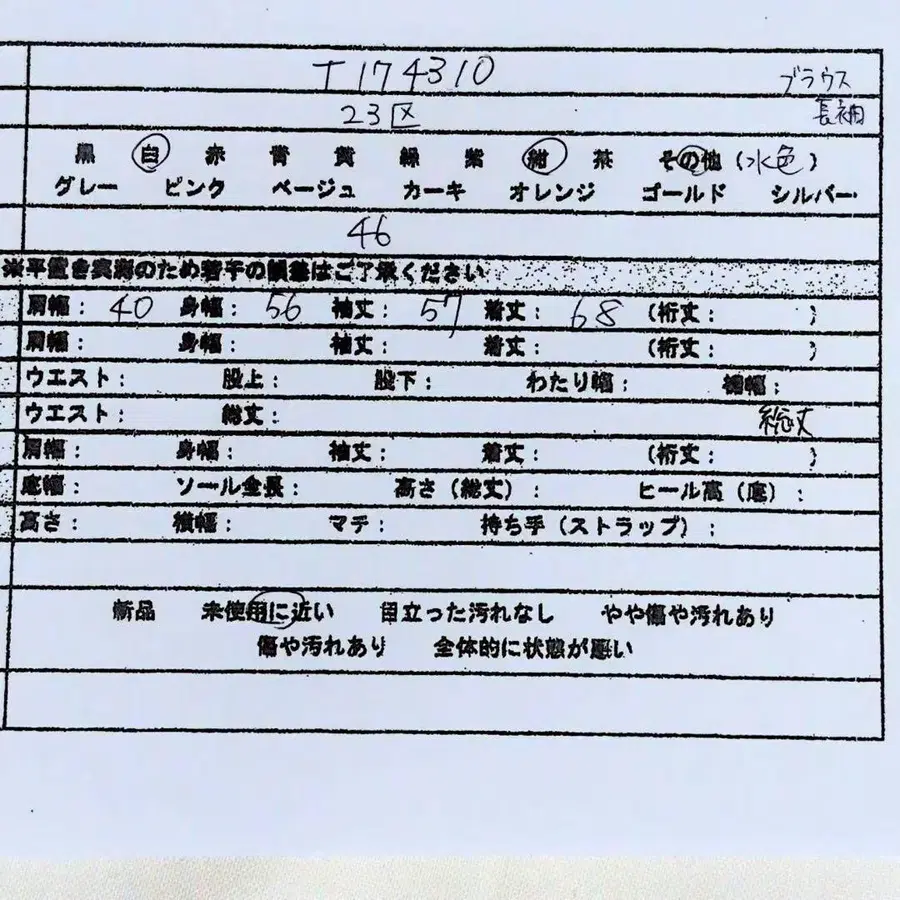 T174310 ブラウス
23区 長袖
黒 白 赤 青 黄 緑 紫 紺 茶 その他(水色)
グレー ピンク ベージュ カーキ オレンジ ゴールド シルバー
46
※平置き実測のため若干の誤差はご了承ください
肩幅: 40 身幅: 56 袖丈: 57 着丈: 68 (裄丈: )
肩幅: 身幅: 袖丈: 着丈: (裄丈: )
ウエスト: 股上: 股下: わたり幅: 裾幅:
ウエスト: 総丈: 総丈
肩幅: 身幅: 袖丈: 着丈: (裄丈: )
底幅: ソール全長: 高さ(総丈): ヒール高(底):
高さ: 横幅: マチ: 持ち手(ストラップ):
新品 未使用に近い 目立った汚れなし やや傷や汚れあり
傷や汚れあり 全体的に状態が悪い